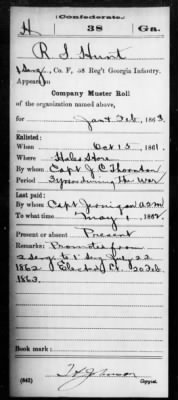 (Confederate.)
H 38 Ga.
R. S. Hunt
1 Serg, Co. F, 38 Reg't Georgia Infantry.
Appears on
Company Muster Roll
of the organization named above,
for Jan & Feb, 1863.
Enlisted:
When Oct 15, 1861.
Where Hales Store
By whom Capt J. C. Thornton
Period 3 years during The War
Last paid:
By whom Capt Jernigan aqm
To what time May 1, 1862
Present or absent Present
Remarks: Promoted from
2 Serg to 1" Serg July 22
1862 Elected Lt. 20 Feb
1863.
Book mark:
(642) Copyist.